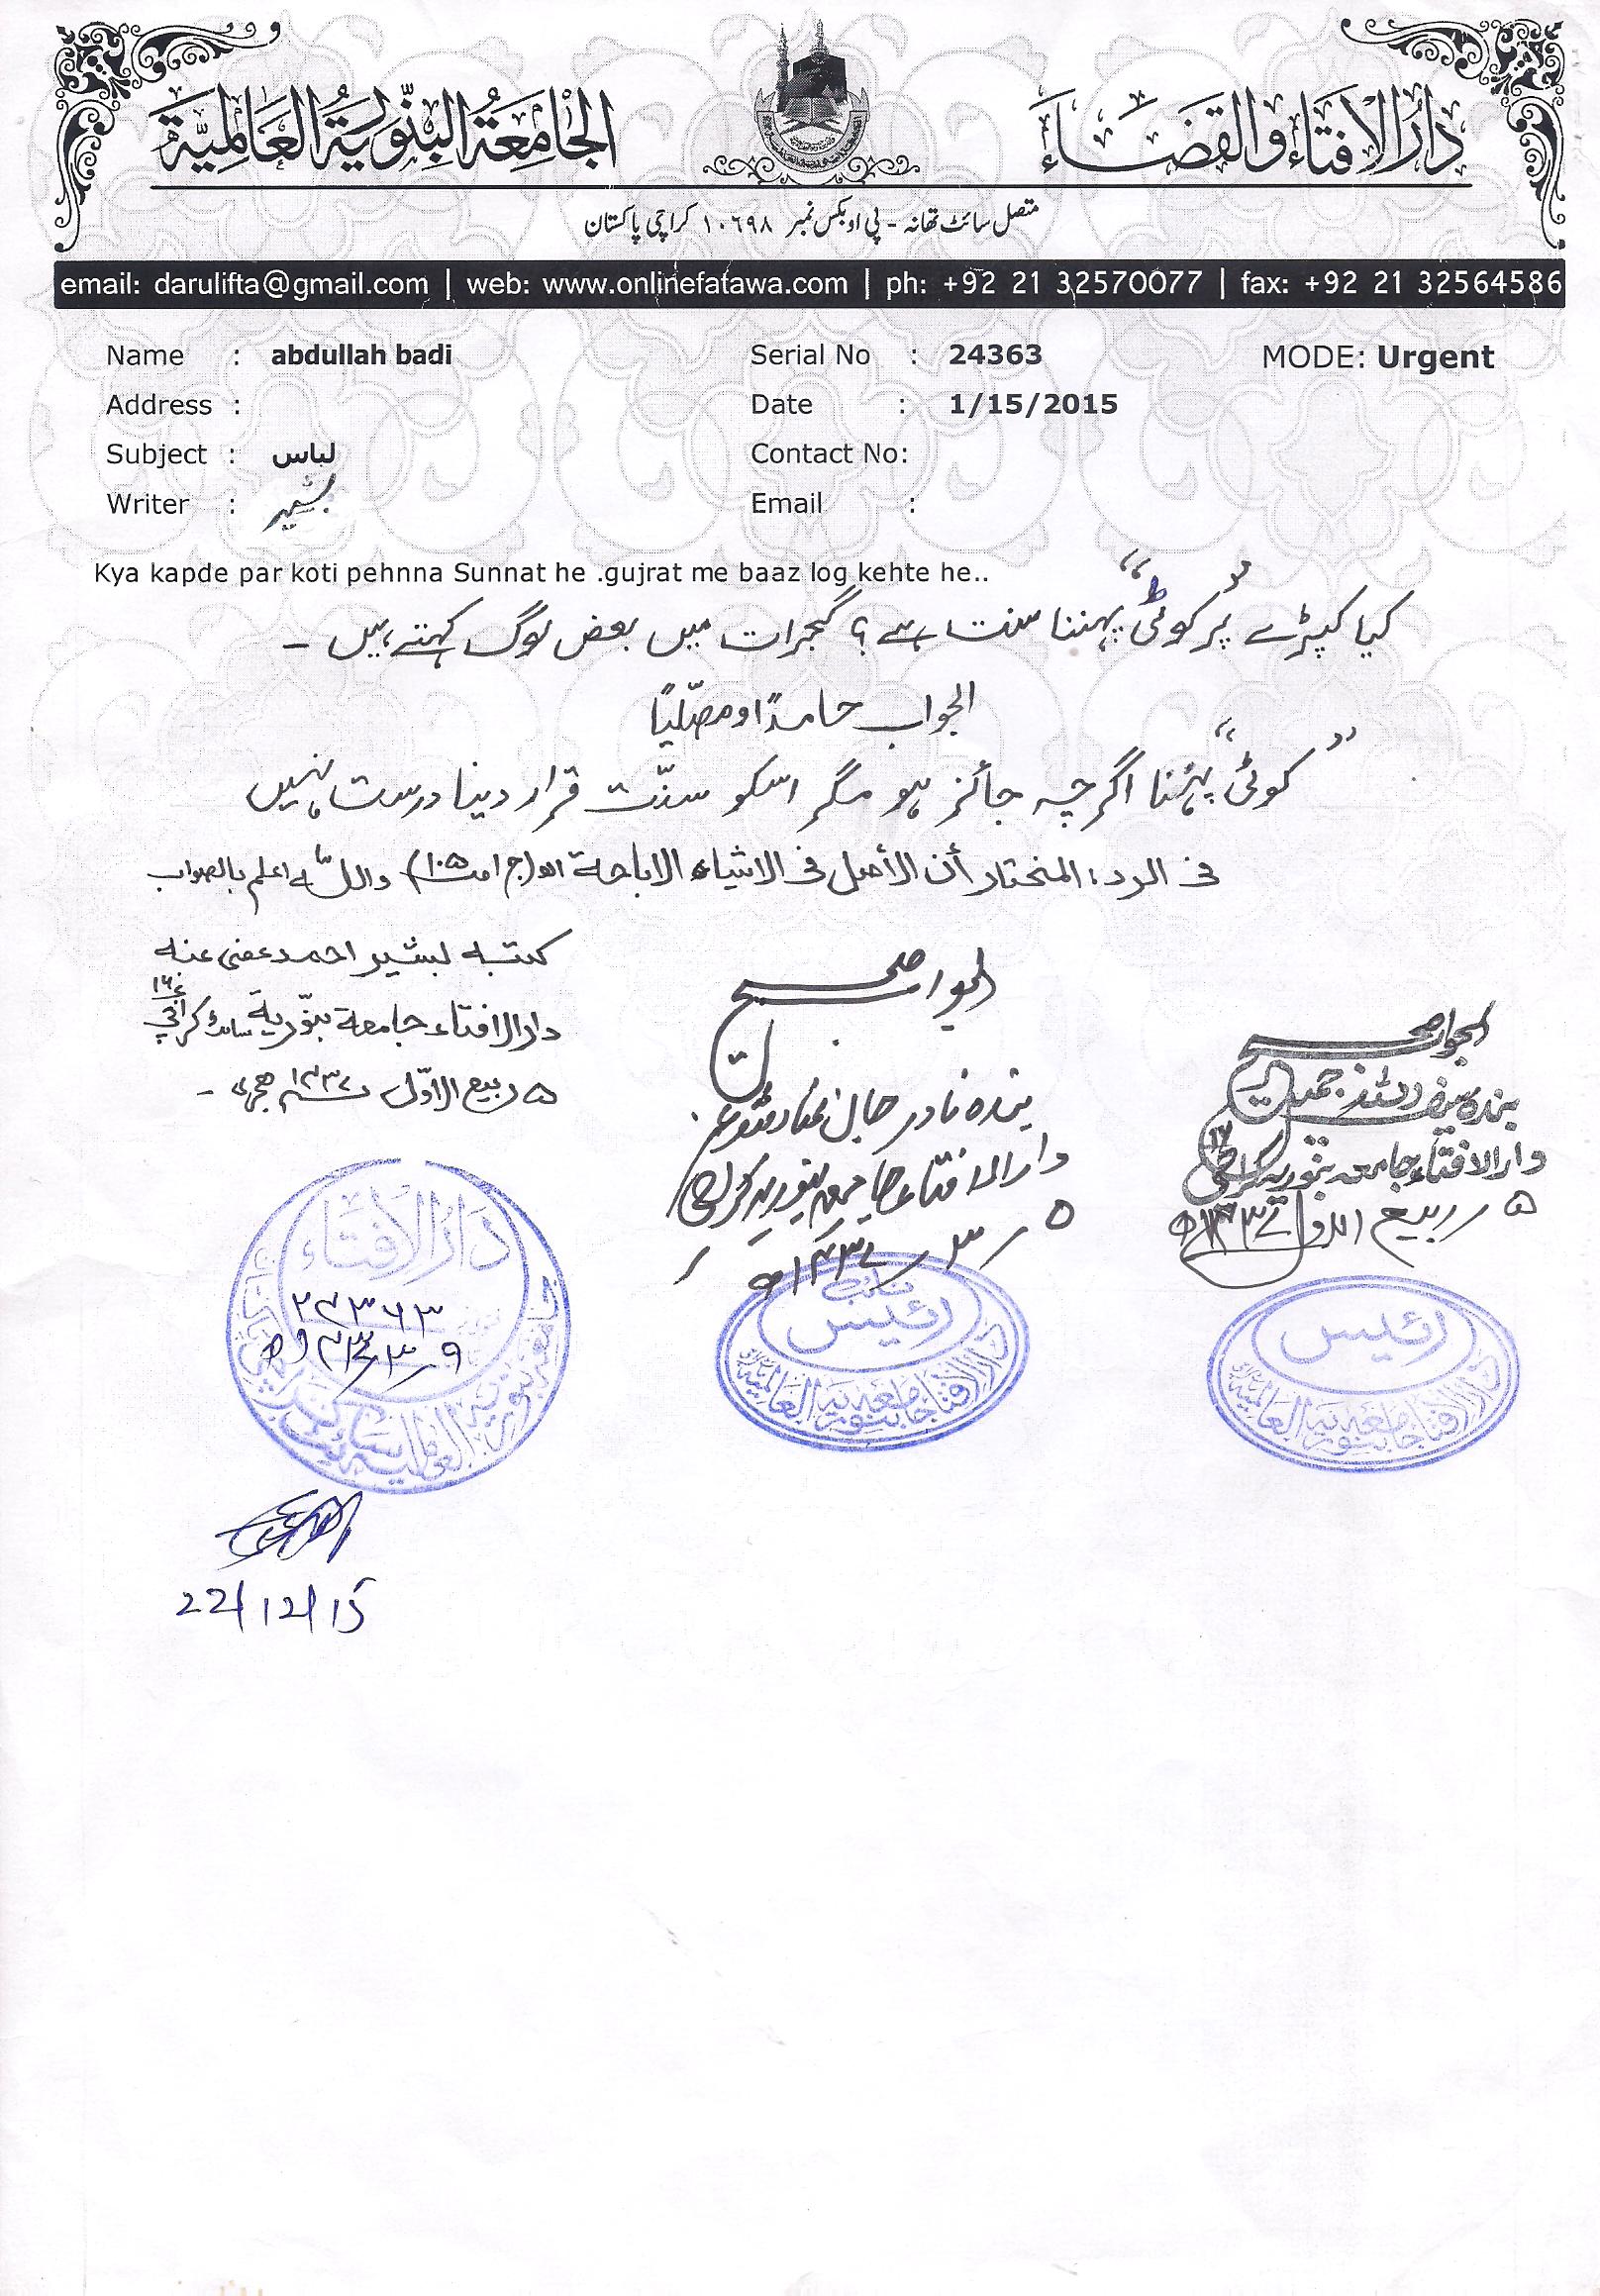 دارُالافتاء والقضاء
الجامعة البنّورية العالمية
متصل سائٹ تھانہ - پی او بکس نمبر ۱۰۶۹۸ کراچی پاکستان
email: darulifta@gmail.com | web: www.onlinefatawa.com | ph: +92 21 32570077 | fax: +92 21 32564586
Name : abdullah badi Serial No : 24363 MODE: Urgent
Address : Date : 1/15/2015
Subject : لباس Contact No:
Writer : بشیر Email :
Kya kapde par koti pehnna Sunnat he .gujrat me baaz log kehte he..
کیا کپڑے پر "کوٹی" پہننا سنت ہے؟ گجرات میں بعض لوگ کہتے ہیں ۔
الجواب حامدًا ومصلّیًا
"کوٹی" پہننا اگرچہ جائز ہو مگر اسکو سنّت قرار دینا درست نہیں
فی الرد: المختار أن الأصل فی الاشیاء الاباحة اھ (ج۱ ص۱۰۵) واللہ اعلم بالصواب
کتبہ بشیر احمد عفی عنہ
دارالافتاء جامعة بنّوریة سائٹ کراچی
۵ ربیع الاوّل ۱۴۳۷ ھجری ۔
الجواب صحیح
بندہ نادر جان
دارالافتاء جامعہ بنوریہ کراچی
۵ ر ۳ ر ۱۴۳۷ھ
الجواب صحیح
بندہ سیف اللہ جمیل
دارالافتاء جامعہ بنوریہ کراچی
۵ ربیع الاول ۱۴۳۷ھ
دارالافتاء
۲۴۳۶۳
۹ ر ۳ ر ۱۴۳۷ھ
نائب
رئیس
دارالافتا جامعہ بنوریہ العالمیہ
رئیس
دارالافتا جامعہ بنوریہ العالمیہ
22/12/15